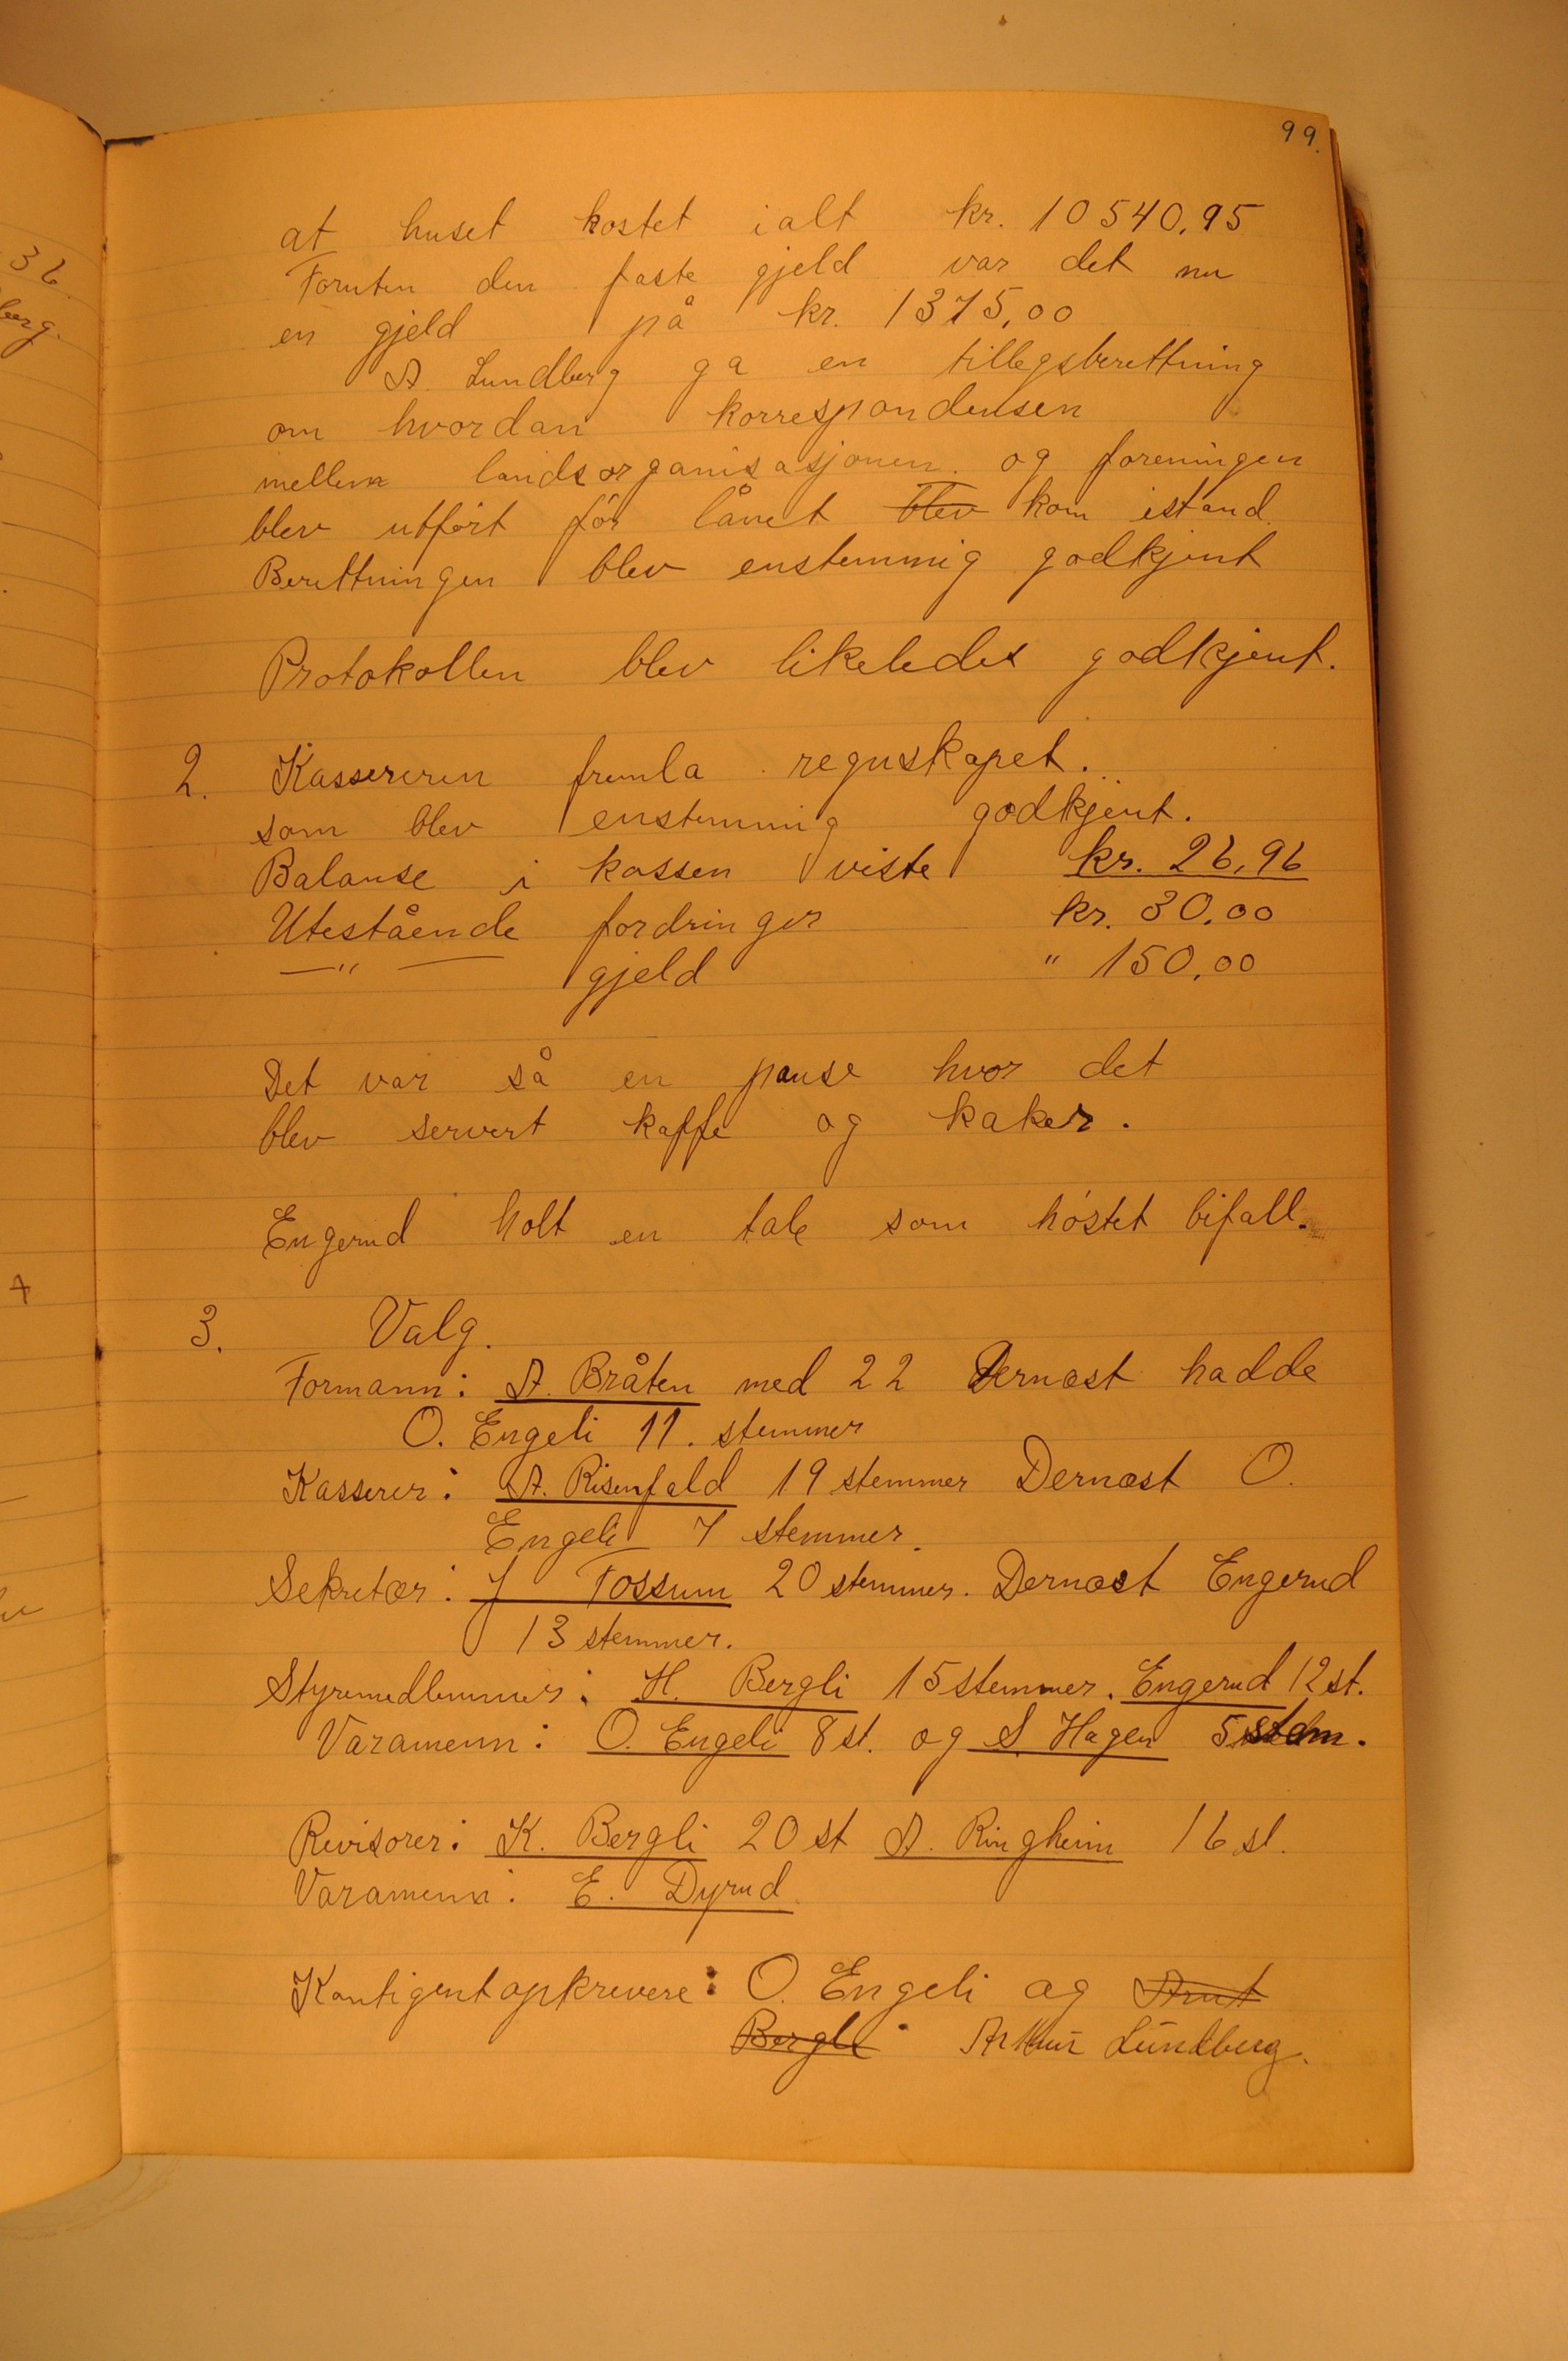 99.
at huset kostet ialt kr. 10540,95
Foruten den faste gjeld var det nu
en gjeld på kr. 1375,00
A. Lundberg ga en tillegsberettning
om hvordan korrespondensen
mellem landsorganisasjonen. og foreningen
blev utført før lånet blev kom istand.
Berettningen blev enstemmig godkjent
Protokollen blev likeledes godkjent.
2. Kassereren fremla regnskapet.
som blev enstemmig godkjent.
Balanse i kassen viste kr. 26,96
Utestående fordringer kr. 30,00
—"— gjeld " 150,00
Det var så en pause hvor det
blev servert kaffe og kaker.
Engerud holt en tale som høstet bifall.
3. Valg.
Formann: A. Bråten med 22 Dernæst hadde
O. Engeli 11. stemmer
Kasserer: A. Risenfald 19 stemmer Dernæst O.
Engeli 7 stemmer.
Sekretær: J Fossum 20 stemmer. Dernæst Engerud
13 stemmer.
Styremedlemmer: H. Bergli 15 stemmer. Engerud 12 st.
Varamenn: O. Engeli 8 st. og S. Hagen 5 stem.
Revisorer: K. Bergli 20 st A. Ringheim 16 st.
Varamenn: E. Dyrud
Kontigentopkrevere: O. Engeli og Arnt
Bergli Arthur Lundberg.
36
berg.